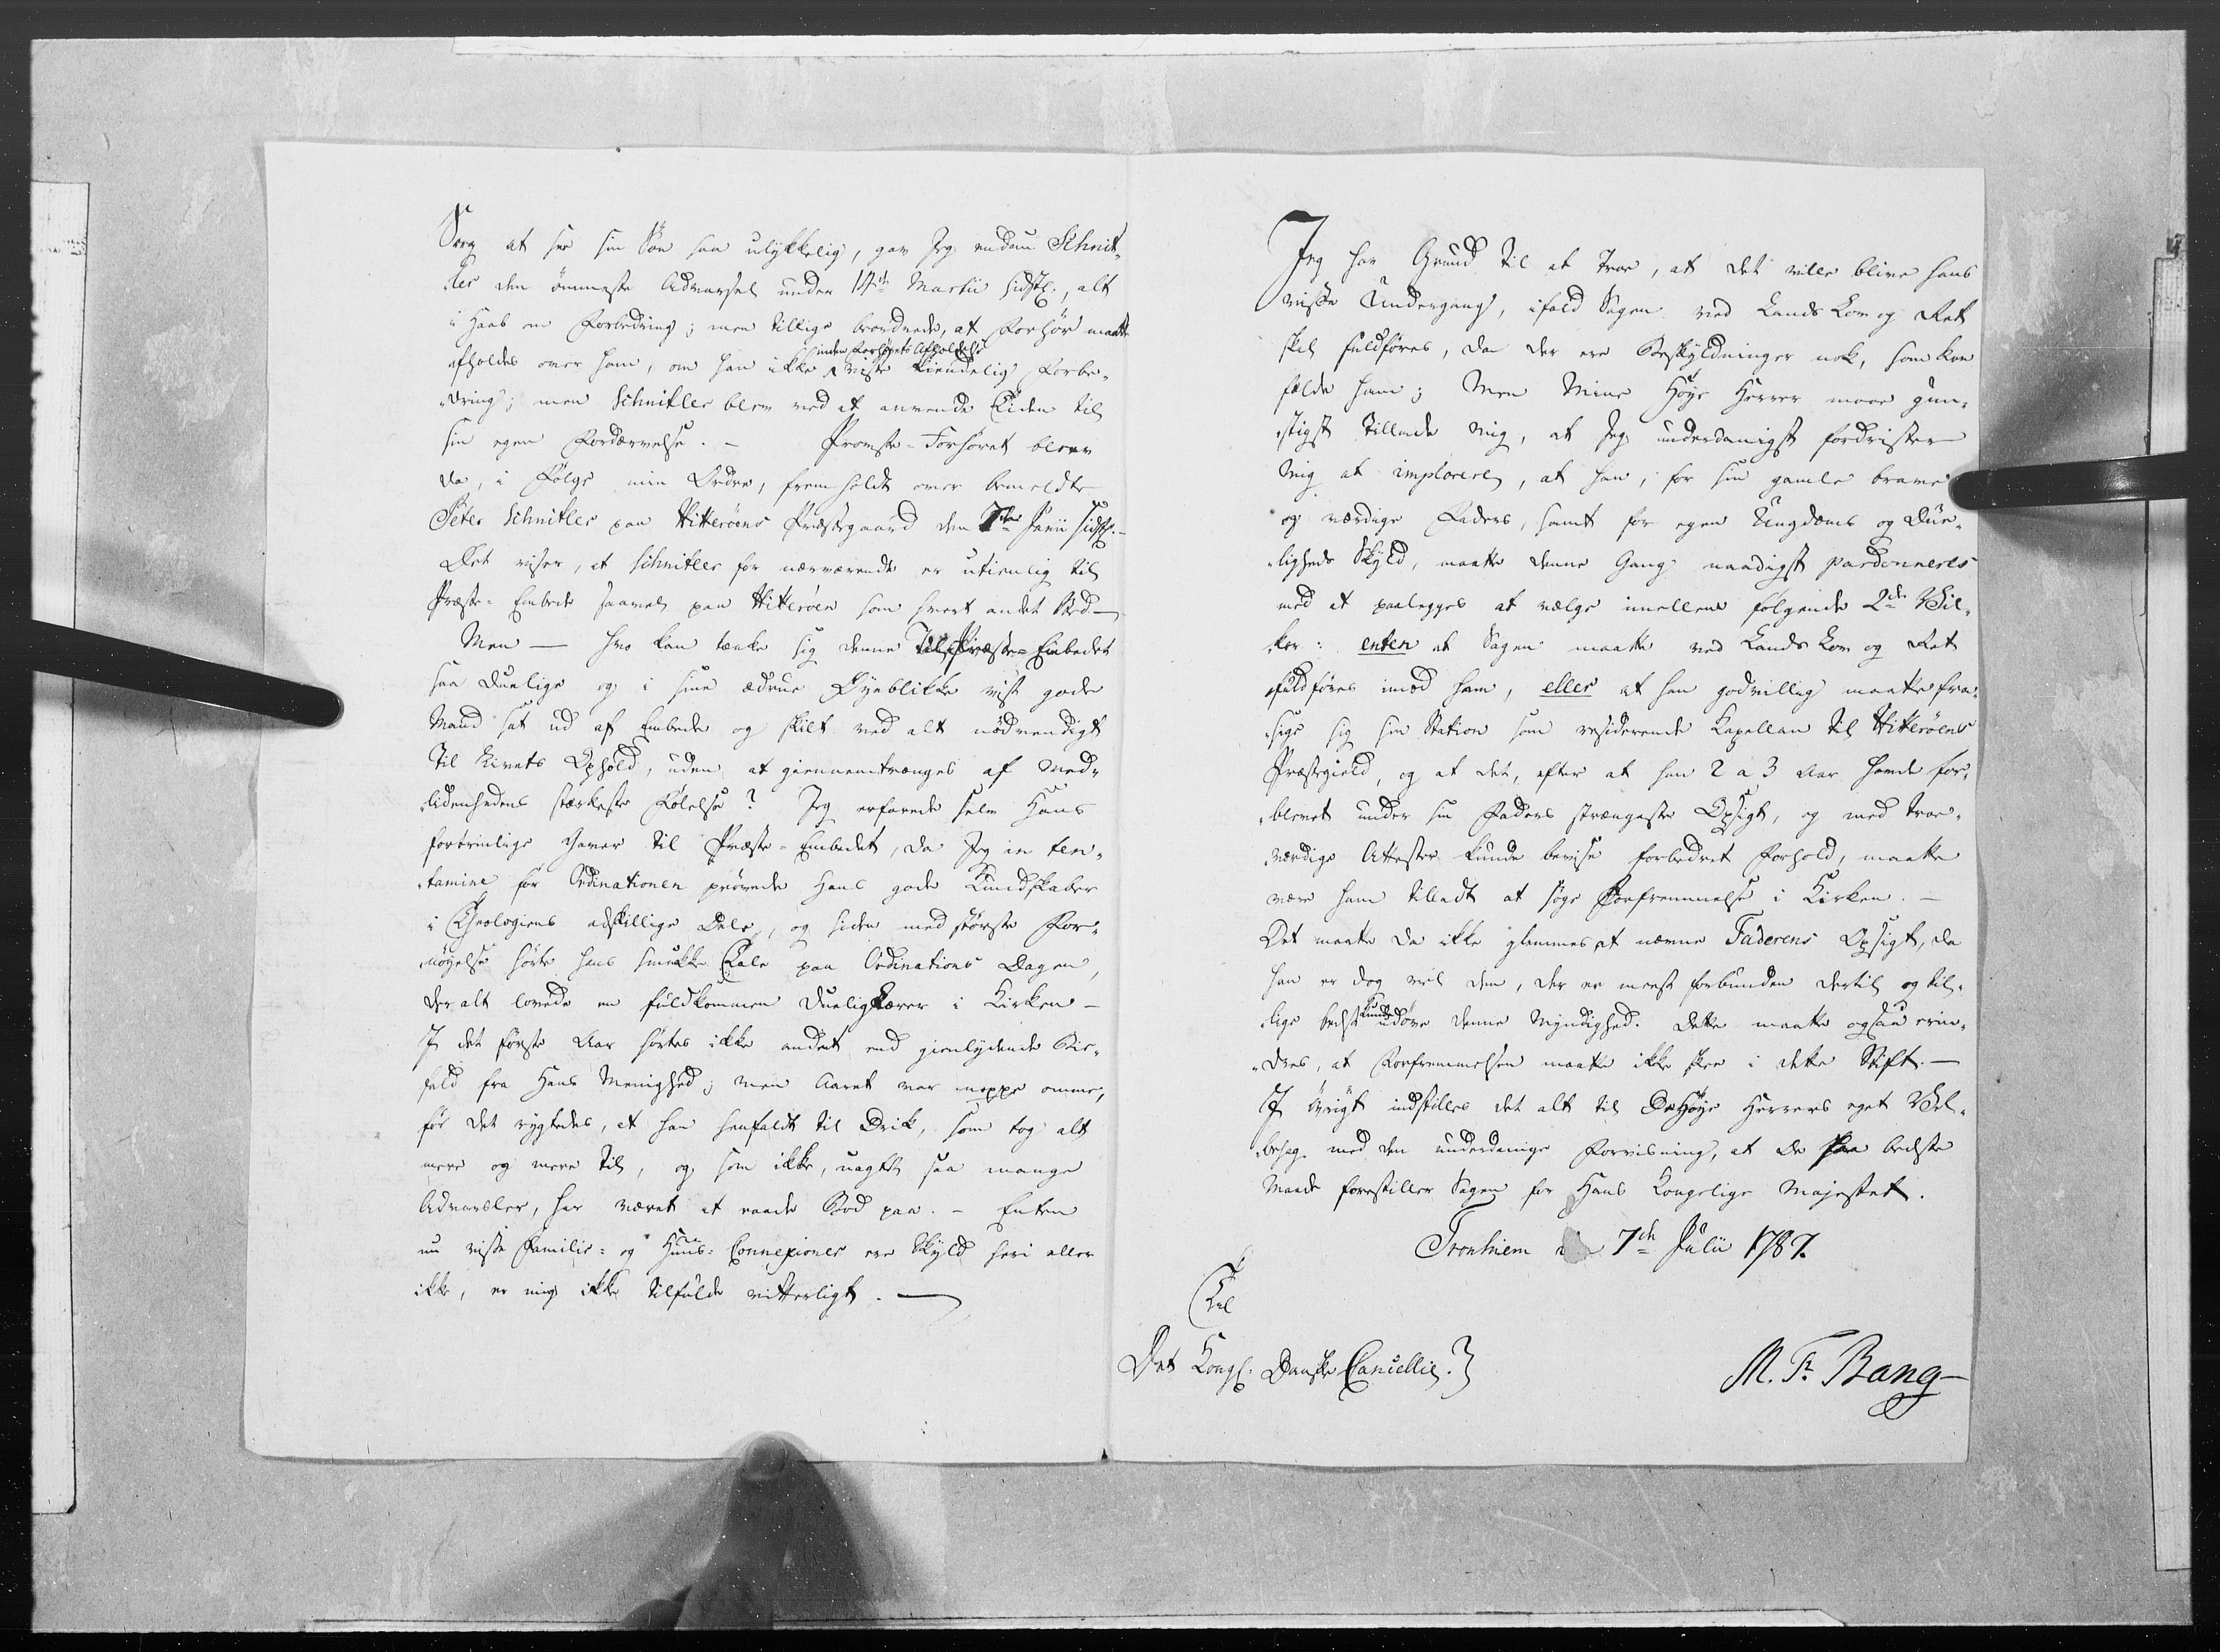 Sorg at see sin Søn saa ulykkelig, gav Jeg endnu Schnit-
ler den ømmeste Advarsel under 14de Martii sidstl., alt
i Haab om Forbedring; men tillige beordrede, at Forhør maatte
afholdes over ham, om han ikke inden Forhørets Afholdelse viste kiendelig Forbe-
dring; men Schnitler blev ved at anvende Tiden til
sin egen Fordærvelse. – Provste-Forhøret blev
da, i Følge min Ordre, fremholdt over bemeldte
Peter Schnitler paa Hitterøens Præstegaard den 7de Junii sidstl. –
Det viser, at Schnitler for nærværende er utienlig til
Præste-Embede saavel paa Hitterøen som hvert andet Sted –
Men – hvo kan tænke sig denne til Præste-Embedet
saa duelige og i sine ædrue Øyeblikke vist gode
Mand sat ud af Embede og skilt ved alt nødvendigt
til Livets Ophold, uden at giennemtrænges af Med-
lidenhedens stærkeste Følelse? Jeg erfarede selv Hans
fortrinlige Gaver til Præste-Embedet, da Jeg in ten-
tamine før Ordinationen prøvede Hans gode Kundskaber
i Theologiens adskillige Dele, og siden med største For-
nøyelse hørte hans smukke Tale paa Ordinations Dagen,
der alt lovede en fuldkommen duelig Lærer i Kirken –
I det første Aar hørtes ikke andet end gienlydende Bie-
fald fra Hans Menighed; men Aaret var neppe omme,
før det rygtedes, at han henfaldt til Drik, som tog alt
mere og mere til, og som ikke, uagtet saa mange
Advarsler, har været at raade Bod paa. – Enten
nu visse Familie- og Huus-Connexioner ere Skyld heri eller
ikke, er mig ikke tilfulde vitterligt. –
Jeg har Grund til at troe, at det ville blive hans
visse Undergang, ifald Sagen ved Lands Lov og Ret
skal fuldføres, da der ere Beskyldninger nok, som kan
fælde ham; Men Mine Høye Herrer maae gun-
stigst tillade mig, at Jeg underdanigst fordrister
mig at implorere, at han, for sin gamle brave
og værdige Faders, samt for egen Ungdoms og Due-
ligheds Skyld, maatte denne Gang naadigst pardonneres
med at paalegges at vælge imellem følgende 2de Vil-
kor: enten at Sagen maatte ved Lands Lov og Ret
fuldføres imod ham, eller at han godvillig maatte fra-
sige sig sin Station som residerende Kapellan til Hitterøens
Præstegield, og at det, efter at han 2 a 3 Aar havde for-
blevet under sin Faders strængeste Opsigt, og med troe-
værdige Attester kunde bevise forbedret Forhold, maatte
være ham tilladt at søge Forfremmelse i Kirken. –
Det maatte da ikke glemmes at nævne Faderens Opsigt, da
han er dog vel den, der er meest forbunden dertil og til-
lige bedst kunde udøve denne Myndighed. Dette maatte ogsaa erin-
dres, at Forfremmelsen maatte ikke skee i dette Stift. –
I øvrigt indstilles det alt til De Høye Herrers eget Vel-
behag med den underdanige Forvisning, at De paa bedste
Maade forestiller Sagen for Hans Kongelige Majestet.
Tronhiem den 7de Julii 1787.
Til
Det Kongl. Danske Cancellie.
M. Fr. Bang